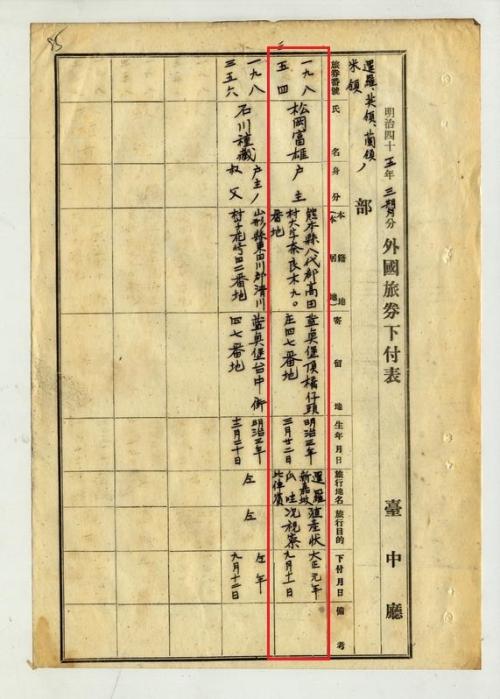 明治四十五年三月分 外國旅券下付表 臺中廳
暹羅、英領、蘭領ノ
米領
部
旅券番號
氏名
身分
本籍地
(本居地)
寄留地
生年月日
旅行地名
旅行目的
下付月日
備考
一九八
三五四
松岡富雄
戶主
熊本縣八代郡高田
村大字奈良木九〇
番地
藍興堡頂橋仔頭
庄四七番地
明治三年
三月廿二日
暹羅
新嘉坡
爪哇
比律賓
殖產狀
況視察
大正元年
九月十一日
一九八
三五六
石川
藏
戶主ノ
叔父
山形縣東田川郡清川
村字花
田二番地
藍興堡台中街
四七番地
明治三年
月二十日
左
左
左年
九月十二日